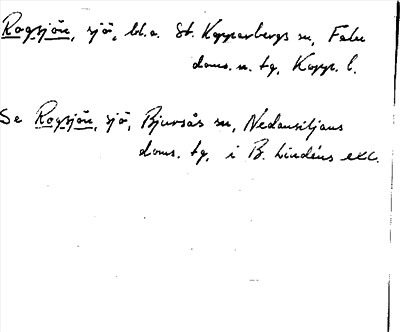 Rogsjön, sjö, bl.a. St. Kopparbergs sn, Falu
doms. n. tg, Kopp. l.
Se Rogsjön, sjö, Bjursås sn, Nedansiljans
doms. tg, i B. Lindéns exc.